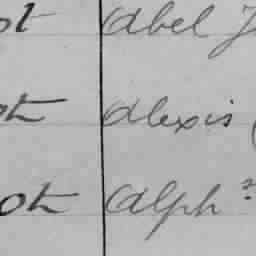 ot Abel J
ot Alexis (
ot Alph s.